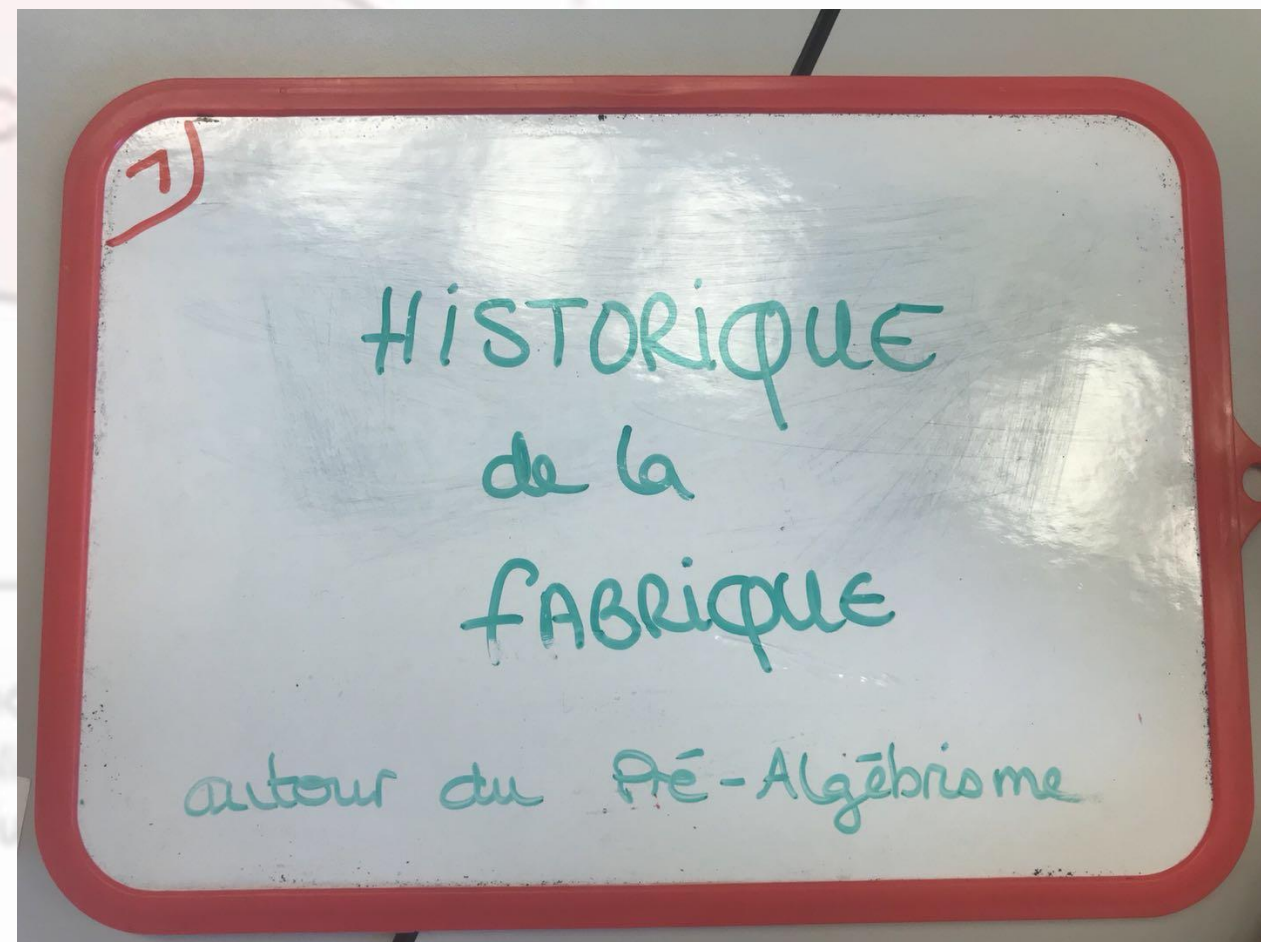 1
HiSTORiQUE
de la
fABRiQUE
autour du Pré-Algébrisme